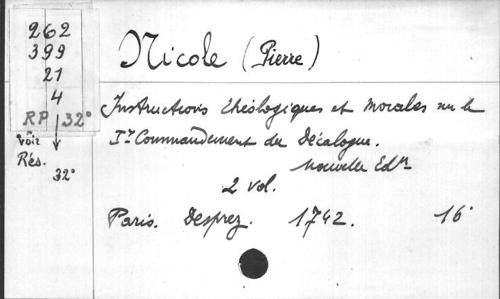 262
399
21
4
RP 32°
Voir
Rés.
32°
Nicole (Pierre)
Instructions théologiques et morales sur le
Ir Commandement du Décalogue.
Nouvelle Edon
2 vol.
Paris. Desprez. 1742. 16°